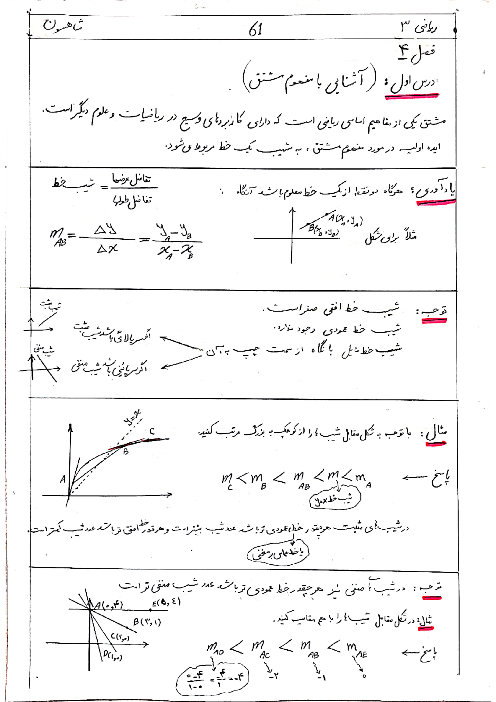 ریاضی ۳
61
شاهسون
فصل ۴
درس اول: (آشنایی با مفهوم مشتق)
مشتق یکی از مفاهیم اساسی ریاضی است که دارای کاربردهای وسیع در ریاضیات و علوم دیگر است.
ایده اولیه در مورد مفهوم مشتق، به شیب یک خط مربوط می‌شود.
یادآوری: هرگاه دو نقطه از یک خط معلوم باشد آنگاه:
شیب خط = تفاضل عرضها / تفاضل طولها
مثلاً برای شکل
A(x_A, y_A)
B(x_B, y_B)
m_AB = Δy/Δx = (y_A − y_B)/(x_A − x_B)
توجه: شیب خط افقی صفر است.
شیب خط عمودی وجود ندارد.
شیب خط مایل با نگاه از سمت چپ به آن
اگر سربالایی باشد شیب مثبت
اگر سرپایینی باشد شیب منفی
شیب مثبت
شیب منفی
مثال: با توجه به شکل مقابل شیب ها را از کوچک به بزرگ مرتب کنید.
y=x
C
B
A
پاسخ ← m_C < m_B < m_AB < m < m_A
شیب خط y=x
در شیب‌های مثبت هرچقدر خط عمودی تر باشد عدد شیب بیشتر است و هرقدر خط افقی تر باشد عدد شیب کمتر است.
یا خط مماس بر منحنی
توجه: در شیب های منفی نیز هرچقدر خط عمودی تر باشد عدد شیب منفی تر است
مثال: در شکل مقابل شیب ها را با هم مقایسه کنید.
A(0,4)
E(5,4)
B(3,1)
C(2,0)
D(1,0)
پاسخ ← m_AD < m_AC < m_AB < m_AE
(0−4)/(1−0) = −4/1 = −4
−2
−1
0